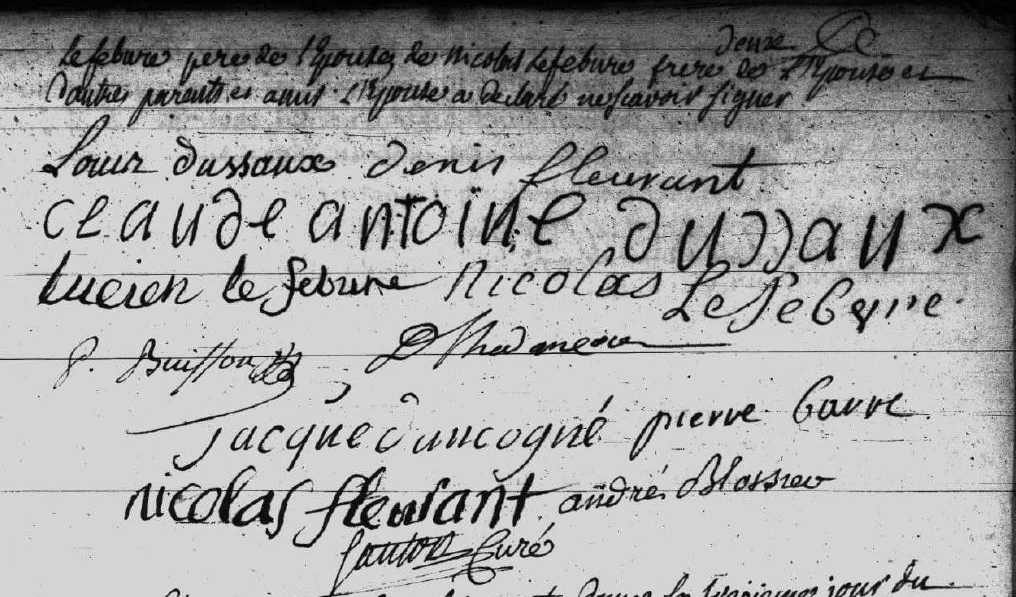 deux
Lefebure pere de l'Epouse, de Nicolas Lefebure frere de l'Epouse et
d'autres parents et amis l'Epouse a declaré ne scavoir signer
Louis dussaux denis fleurant
claude antoine dussaux
lucien le febure Nicolas Le febure
P. Buisson
Jacque dancogné pierre barre
nicolas fleurant andré Blossieu
Curé
jour du